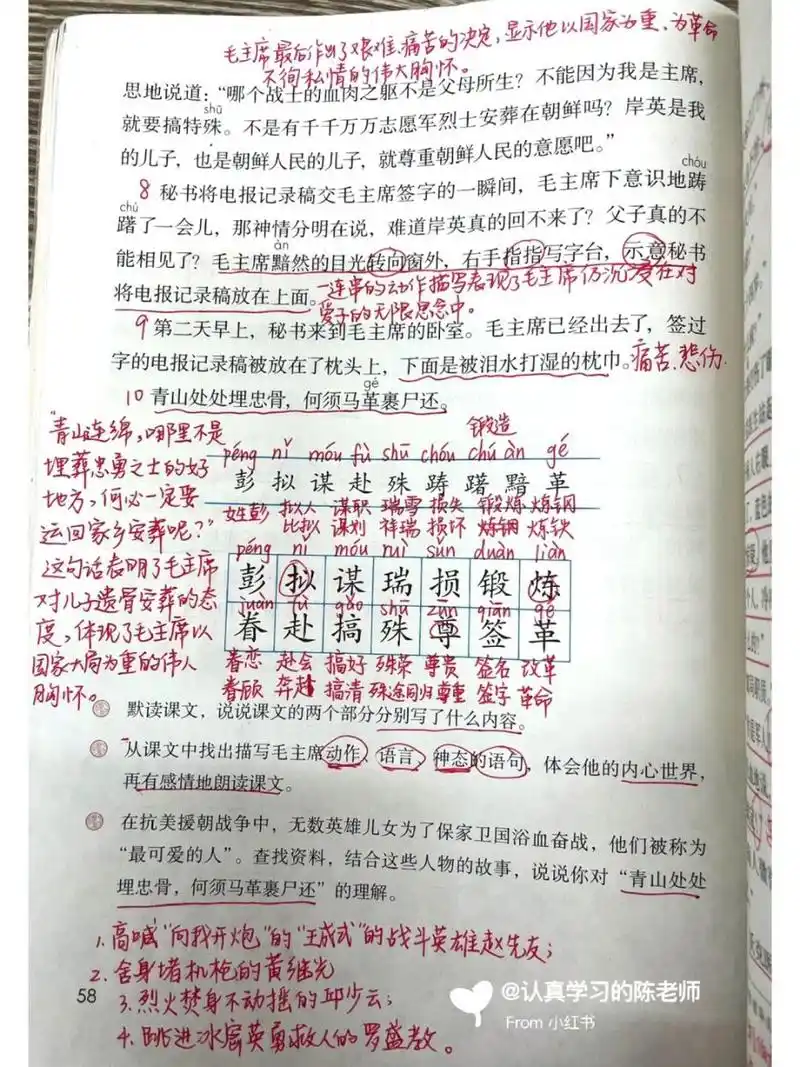 毛主席最后作出了艰难、痛苦的决定,显示他以国家为重、为革命
不徇私情的伟大胸怀。
思地说道:“哪个战士的血肉之躯不是父母所生?不能因为我是主席,
shū
就要搞特殊。不是有千千万万志愿军烈士安葬在朝鲜吗?岸英是我
的儿子,也是朝鲜人民的儿子,就尊重朝鲜人民的意愿吧。”
chóu
8 秘书将电报记录稿交毛主席签字的一瞬间,毛主席下意识地踌
chú
躇了一会儿,那神情分明在说,难道岸英真的回不来了?父子真的不
àn
能相见了?毛主席黯然的目光转向窗外,右手指指写字台,示意秘书
将电报记录稿放在上面。
一连串的动作描写表现了毛主席仍沉浸在对
爱子的无限思念中。
9 第二天早上,秘书来到毛主席的卧室。毛主席已经出去了,签过
字的电报记录稿被放在了枕头上,下面是被泪水打湿的枕巾。痛苦、悲伤
gé
10 青山处处埋忠骨,何须马革裹尸还。
“青山连绵,哪里不是
埋葬忠勇之士的好
地方,何必一定要
运回家乡安葬呢?”
这句话表明了毛主席
对儿子遗骨安葬的态
度,体现了毛主席以
国家大局为重的伟人
胸怀。
锻造
péng nǐ móu fù shū chóu chú àn gé
彭 拟 谋 赴 殊 踌 躇 黯 革
姓彭 拟人 谋职 瑞雪 损失 锻炼 炼钢
比拟 谋划 祥瑞 损坏 炼钢 炼铁
péng nǐ móu ruì sǔn duàn liàn
彭 拟 谋 瑞 损 锻 炼
juàn fù gǎo shū zūn qiān gé
眷 赴 搞 殊 尊 签 革
眷恋 赴会 搞好 殊荣 尊贵 签名 改革
眷顾 奔赴 搞清 殊途同归 尊重 签字 革命
默读课文,说说课文的两个部分分别写了什么内容。
从课文中找出描写毛主席动作、语言、神态的语句,体会他的内心世界,
再有感情地朗读课文。
在抗美援朝战争中,无数英雄儿女为了保家卫国浴血奋战,他们被称为
“最可爱的人”。查找资料,结合这些人物的故事,说说你对“青山处处
埋忠骨,何须马革裹尸还”的理解。
1. 高喊“向我开炮”的“王成式”的战斗英雄赵先友;
2. 舍身堵机枪的黄继光
3. 烈火焚身不动摇的邱少云;
4. 跳进冰窟英勇救人的罗盛教。
58
@认真学习的陈老师
From 小红书